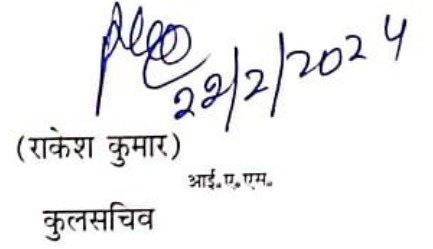 22/2/2024
(राकेश कुमार)
आई.ए.एम.
कुलसचिव